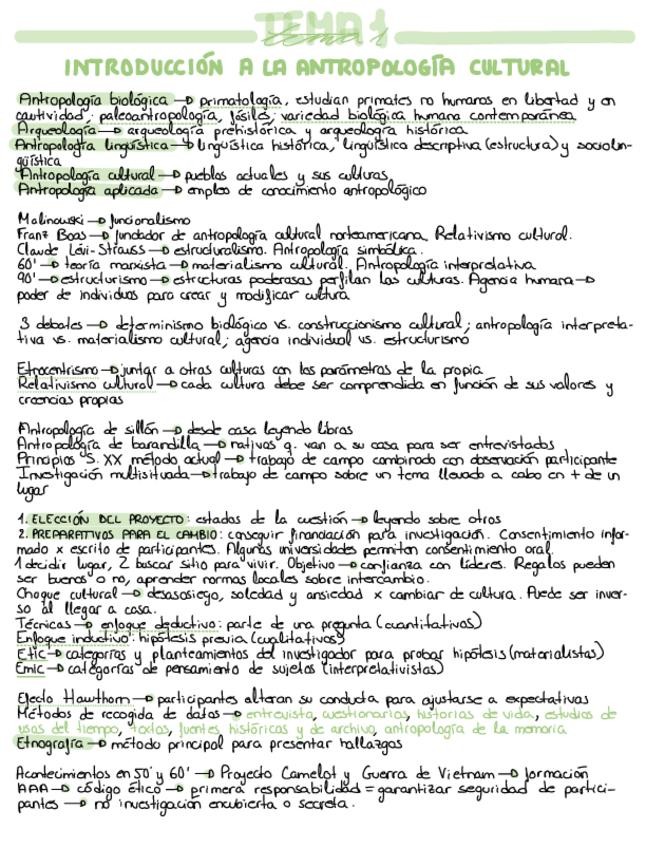 TEMA 1
tema 1
INTRODUCCIÓN A LA ANTROPOLOGÍA CULTURAL
Antropología biológica → primatología, estudian primates no humanos en libertad y en
cautividad; paleoantropología, fósiles; variedad biológica humana contemporánea
Arqueología → arqueología prehistórica y arqueología histórica
Antropología lingüística → lingüística histórica, lingüística descriptiva (estructura) y sociolin-
güística
Antropología cultural → pueblos actuales y sus culturas
Antropología aplicada → empleo de conocimiento antropológico
Malinowski → funcionalismo
Franz Boas → fundador de antropología cultural norteamericana. Relativismo cultural.
Claude Lévi-Strauss → estructuralismo. Antropología simbólica.
60' → teoría marxista → materialismo cultural. Antropología interpretativa
90' → estructurismo → estructuras poderosas perfilan las culturas. Agencia humana →
poder de individuos para crear y modificar cultura
3 debates → determinismo biológico vs. construccionismo cultural; antropología interpreta-
tiva vs. materialismo cultural; agencia individual vs. estructurismo
Etnocentrismo → juntar a otras culturas con los parámetros de la propia
Relativismo cultural → cada cultura debe ser comprendida en función de sus valores y
creencias propias
Antropología de sillón → desde casa leyendo libros
Antropología de barandilla → nativos q. van a su casa para ser entrevistados
Principios S. XX método actual → trabajo de campo combinado con observación participante
Investigación multisituada → trabajo de campo sobre un tema llevado a cabo en + de un
lugar
1. ELECCIÓN DEL PROYECTO: estados de la cuestión → leyendo sobre otros
2. PREPARATIVOS PARA EL CAMBIO: conseguir financiación para investigación. Consentimiento infor-
mado x escrito de participantes. Algunas universidades permiten consentimiento oral.
1 decidir lugar, 2 buscar sitio para vivir. Objetivo → confianza con líderes. Regalos pueden
ser buenos o no, aprender normas locales sobre intercambio.
Choque cultural → desasosiego, soledad y ansiedad x cambiar de cultura. Puede ser inver-
so al llegar a casa.
Técnicas → enfoque deductivo: parte de una pregunta (cuantitativos)
Enfoque inductivo: hipótesis previa (cualitativos)
Etic → categorías y planteamientos del investigador para probar hipótesis (materialistas)
Emic → categorías de pensamiento de sujetos (interpretativistas)
Efecto Hawthorn → participantes alteran su conducta para ajustarse a expectativas
Métodos de recogida de datos → entrevista, cuestionarios, historias de vida, estudios de
usos del tiempo, textos, fuentes históricas y de archivo, antropología de la memoria
Etnografía → método principal para presentar hallazgos
Acontecimientos en 50' y 60' → Proyecto Camelot y Guerra de Vietnam → formación
AAA → código ético → primera responsabilidad = garantizar seguridad de partici-
pantes → no investigación encubierta o secreta.